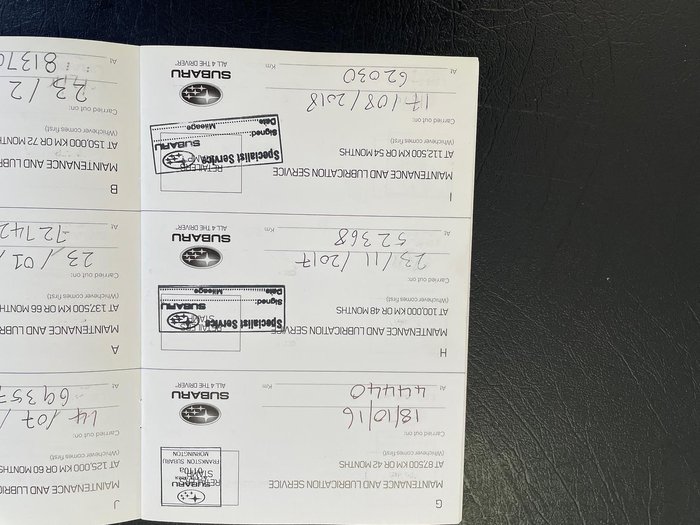 G
MAINTENANCE AND LUBRICATION SERVICE
AT 87,500 KM OR 42 MONTHS
(Whichever comes first)
SUBARU
FRANKSTON SUBARU
MORNINGTON
Carried out on:
18/10/16
At 44440 Km
SUBARU
ALL 4 THE DRIVER
H
MAINTENANCE AND LUBRICATION SERVICE
AT 100,000 KM OR 48 MONTHS
(Whichever comes first)
RETAILERS
STAMP
Specialist Service
SUBARU
Signed:
Date Mileage
Carried out on:
23/11/2017
At 52368 Km
SUBARU
ALL 4 THE DRIVER
I
MAINTENANCE AND LUBRICATION SERVICE
AT 112,500 KM OR 54 MONTHS
(Whichever comes first)
RETAILERS
STAMP
Specialist Service
SUBARU
Signed:
Date Mileage
Carried out on:
17/08/2018
At 62030 Km
SUBARU
ALL 4 THE DRIVER
J
MAINTENANCE AND LUBRIC
AT 125,000 KM OR 60 MONTHS
(Whichever comes first)
Carried out on:
14/07/
At 69357
A
MAINTENANCE AND LUBR
AT 137,500 KM OR 66 MONTHS
(Whichever comes first)
Carried out on:
23/01/
At 72742
B
MAINTENANCE AND LUBR
AT 150,000 KM OR 72 MONTH
(Whichever comes first)
Carried out on:
23/2
At 81370